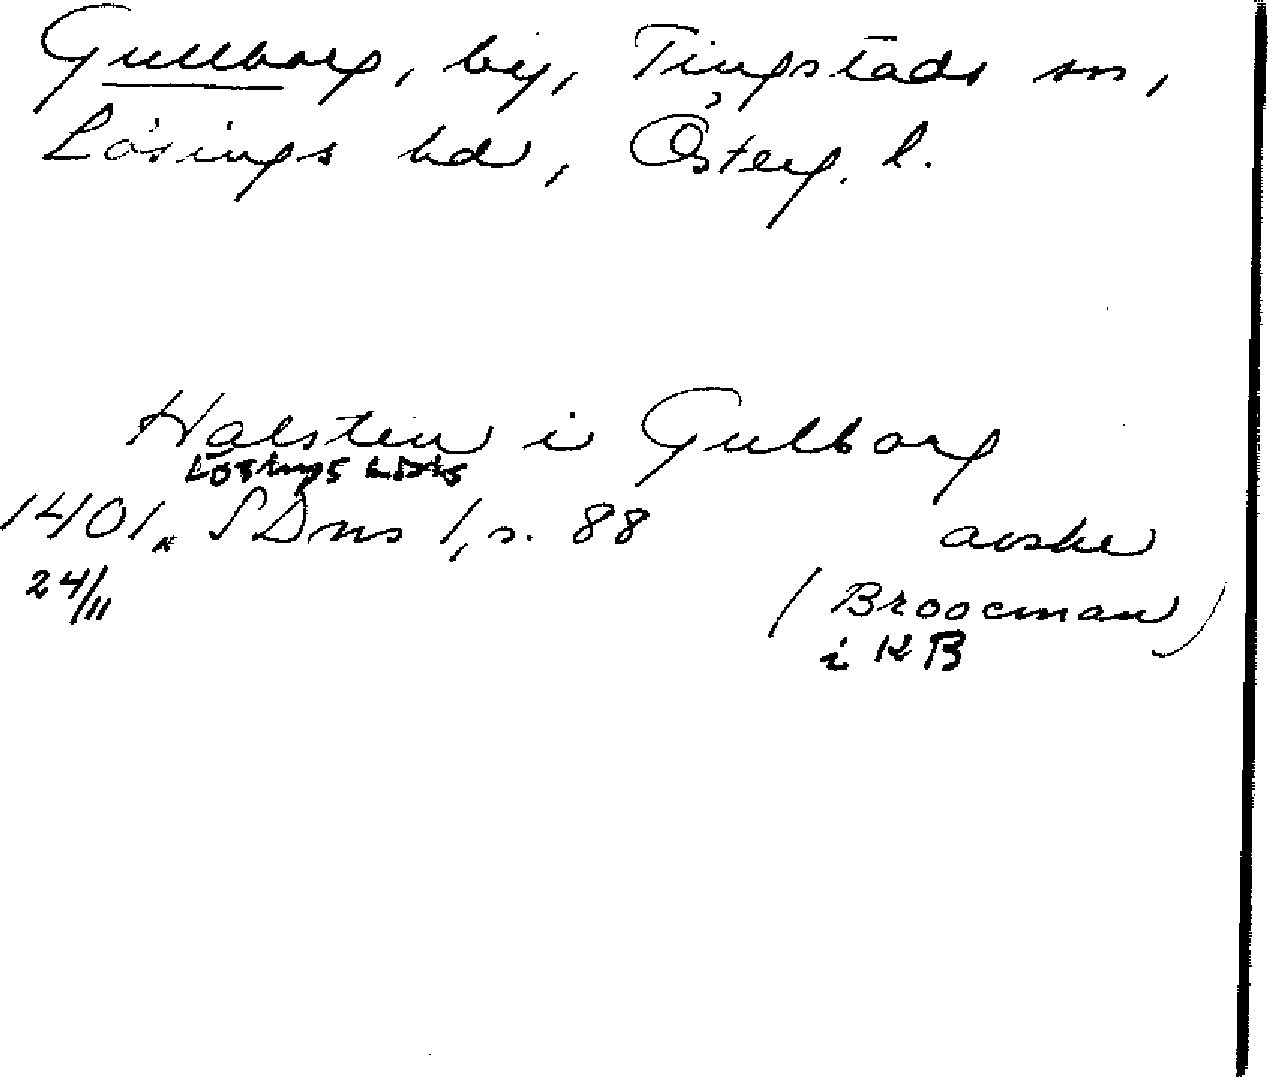 Gullborg, by, Tingstads sn,
Lösings hd, Österg. l.
Halsten i Gulborg
Lösings hds
1401, SDns 1, s. 88 avskr
24/11 (Broocman)
i KB